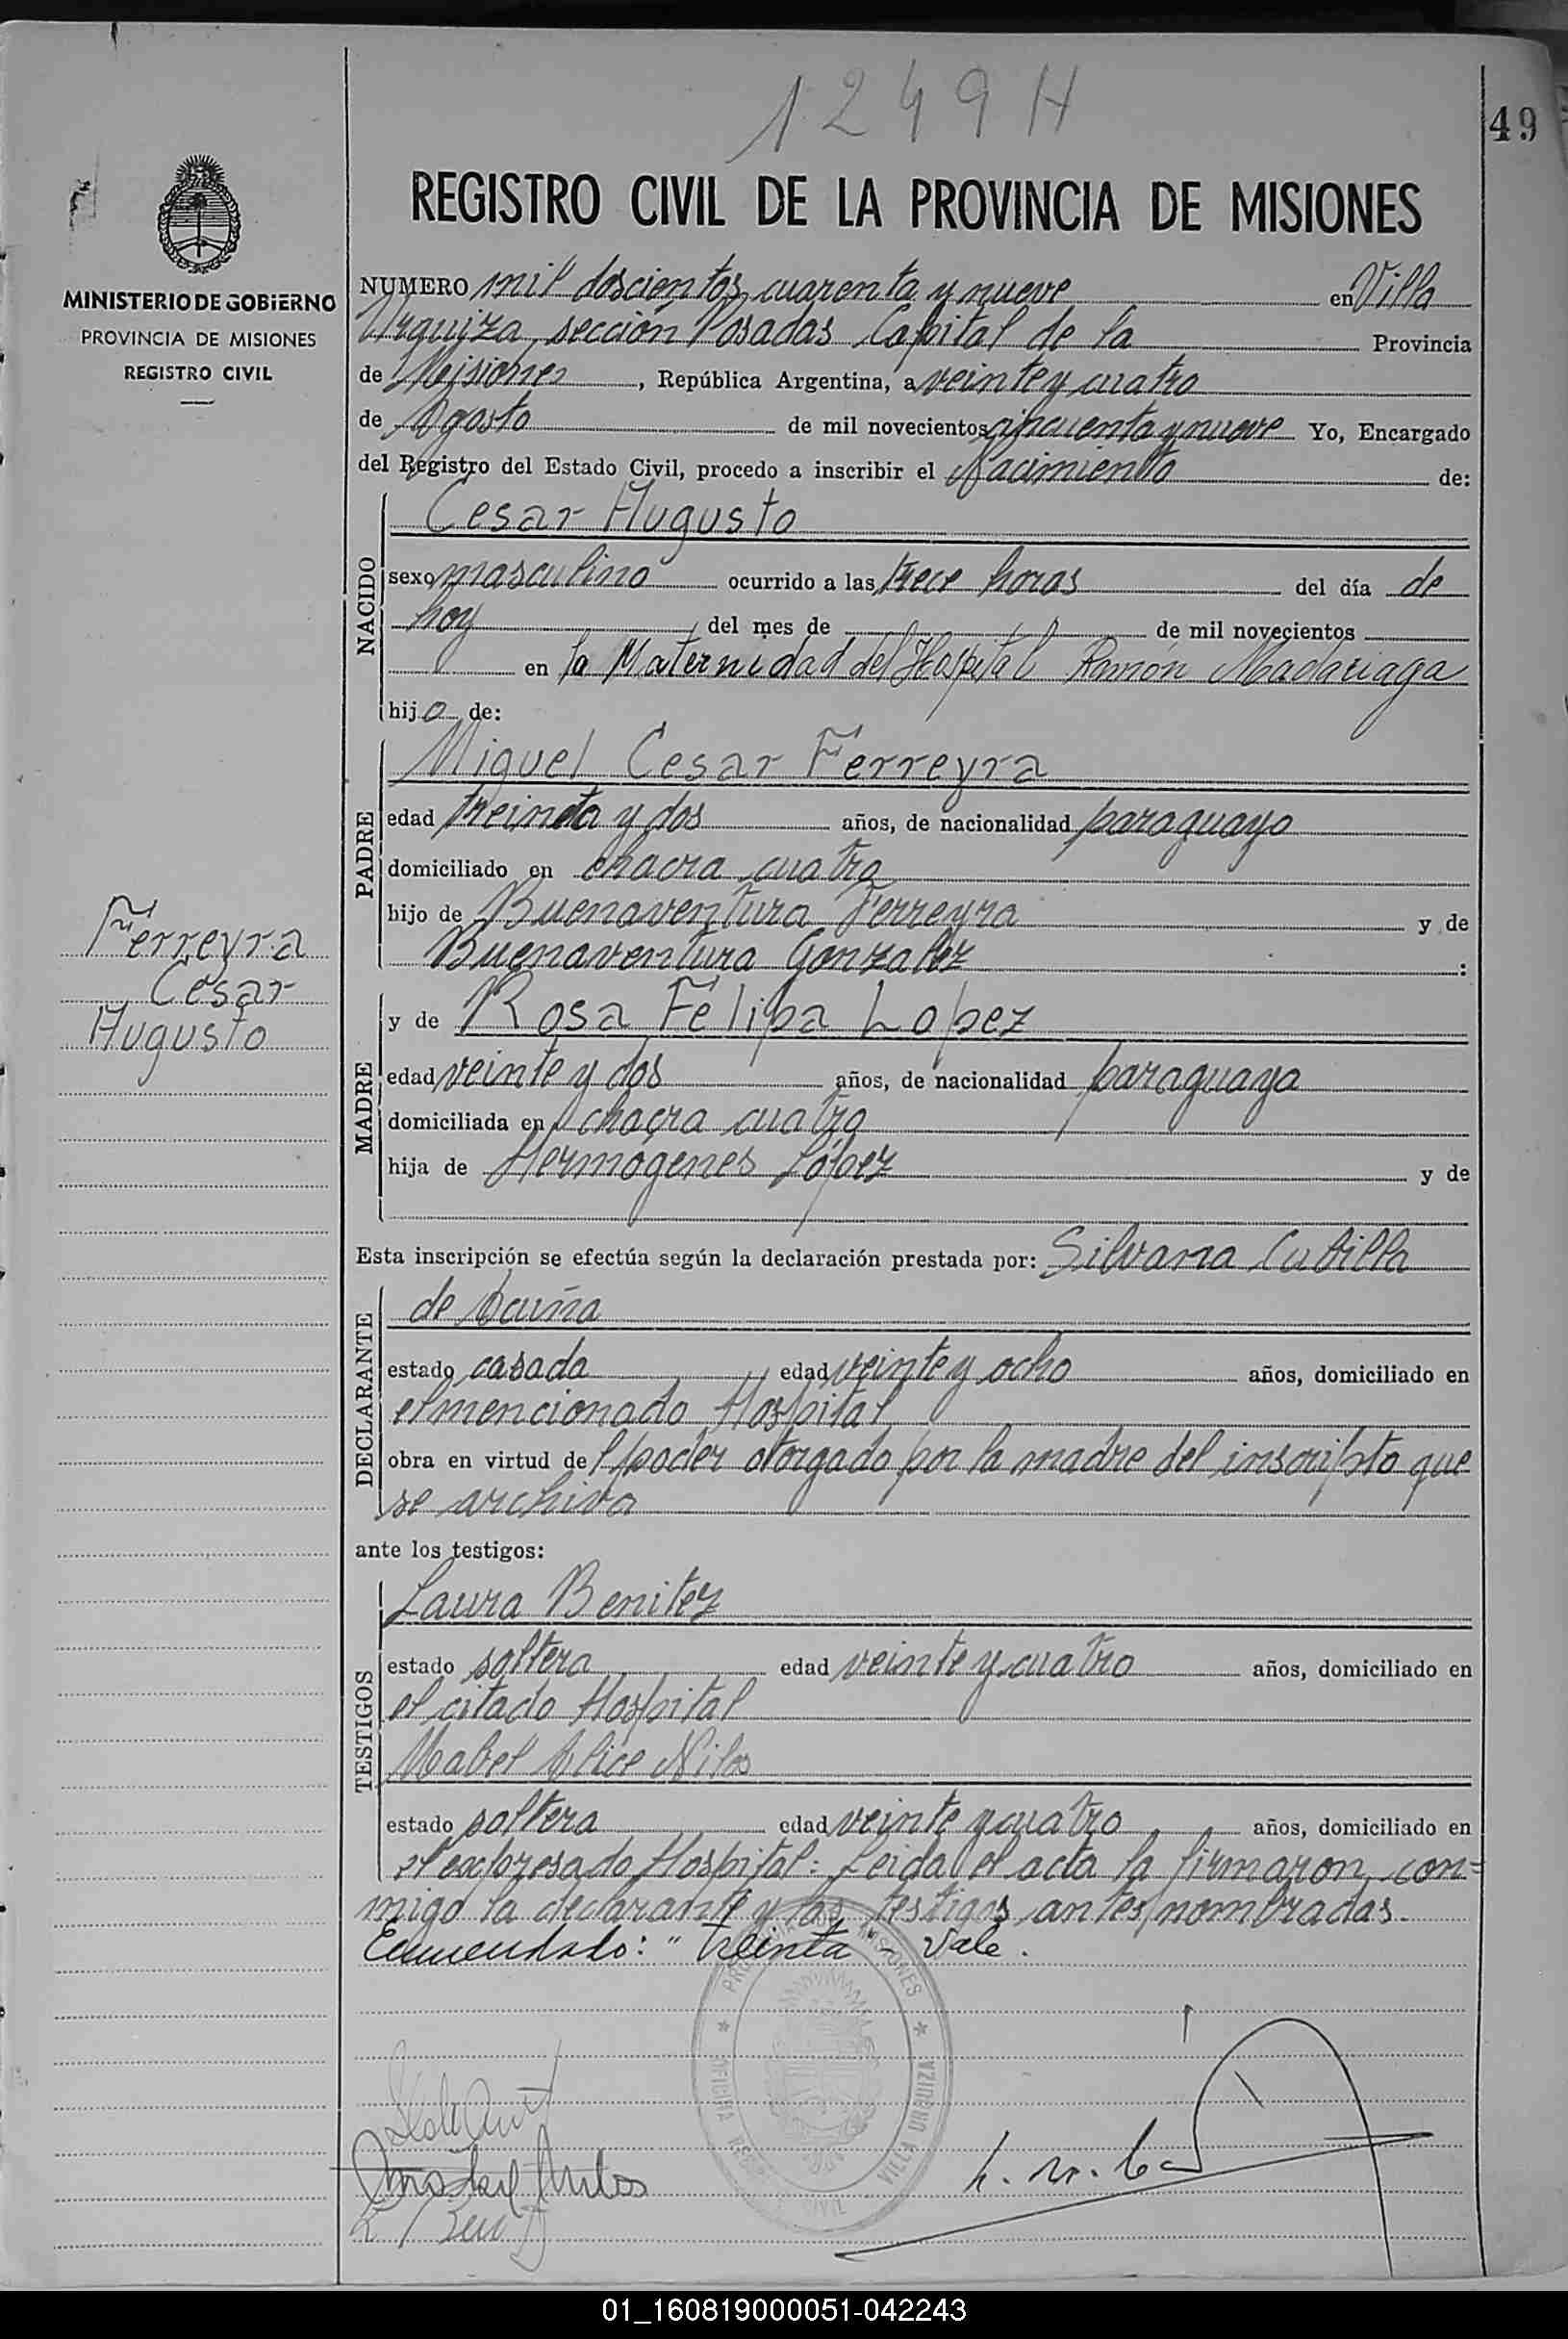 1249H
49
MINISTERIO DE GOBIERNO
PROVINCIA DE MISIONES
REGISTRO CIVIL
REGISTRO CIVIL DE LA PROVINCIA DE MISIONES
NUMERO mil doscientos cuarenta y nueve en Villa
Urquiza, sección Posadas Capital de la Provincia
de Misiones, República Argentina, a veinte y cuatro
de Agosto de mil novecientos cincuenta y nueve Yo, Encargado
del Registro del Estado Civil, procedo a inscribir el Nacimiento de:
NACIDO
Cesar Augusto
sexo masculino ocurrido a las trece horas del día de
hoy del mes de de mil novecientos
en la Maternidad del Hospital Ramón Madariaga
hijo de:
PADRE
Miguel Cesar Ferreyra
edad treinta y dos años, de nacionalidad paraguayo
domiciliado en chacra cuatro
hijo de Buenaventura Ferreyra y de
Buenaventura Gonzalez :
Ferreyra
Cesar
Augusto
MADRE
y de Rosa Felipa Lopez
edad veinte y dos años, de nacionalidad paraguaya
domiciliada en chacra cuatro
hija de Hermogenes López y de
Esta inscripción se efectúa según la declaración prestada por: Silvana Cubilla
DECLARANTE
de
estado casada edad veinte y ocho años, domiciliado en
el mencionado Hospital
obra en virtud del poder otorgado por la madre del inscripto que
se archiva
ante los testigos:
TESTIGOS
Laura Benitez
estado soltera edad veinte y cuatro años, domiciliado en
el citado Hospital
Mabel Alice
estado soltera edad veinte y cuatro años, domiciliado en
el expresado Hospital: Leida el acta la firmaron con=
migo la declarante y las testigos antes nombradas.
Enmendado: "treinta" - Vale.
PROVINCIA DE MISIONES
VILLA URQUIZA
01_160819000051-042243